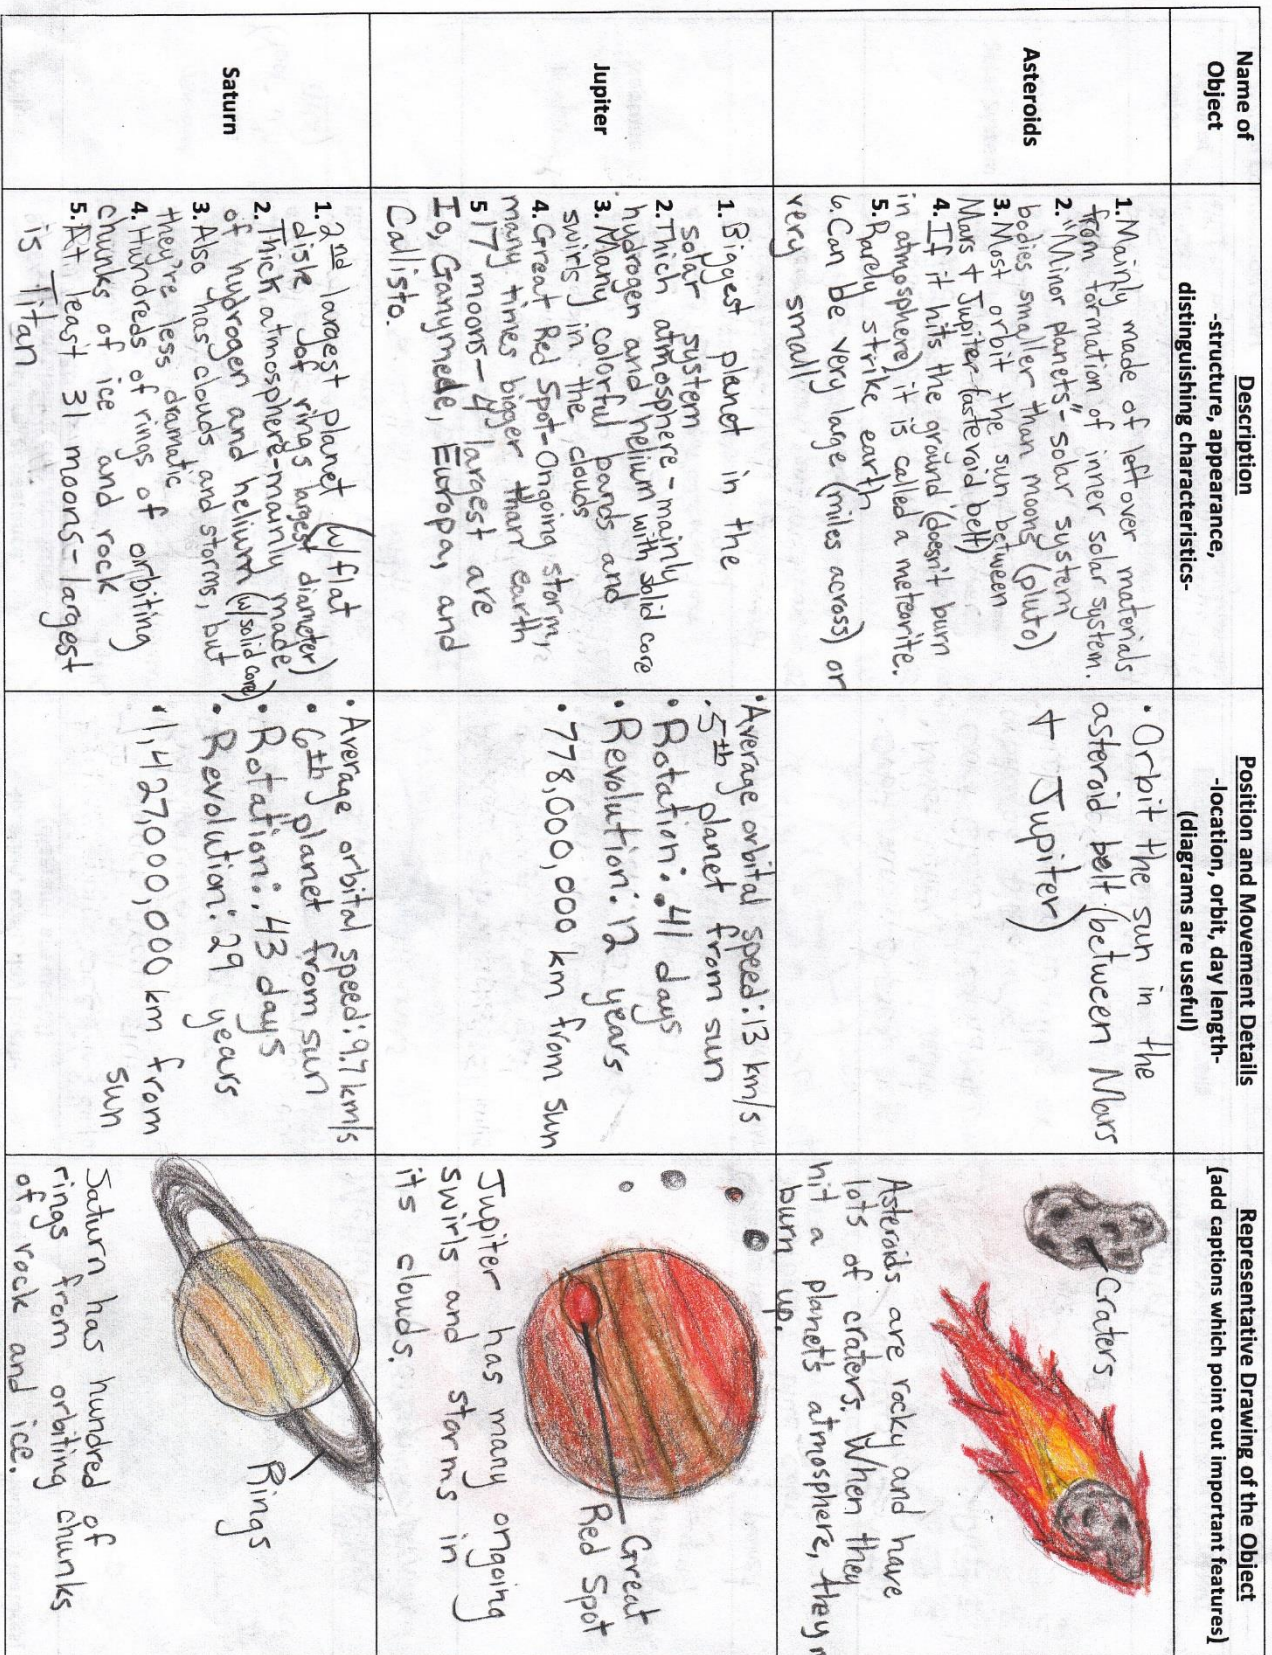 Name of
Object
Description
-structure, appearance,
distinguishing characteristics-
Position and Movement Details
-location, orbit, day length-
(diagrams are useful)
Representative Drawing of the Object
(add captions which point out important features)
Asteroids
1. Mainly made of leftover materials
from formation of inner solar system.
2. "Minor planets" - solar system
bodies smaller than moons (pluto)
3. Most orbit the sun between
Mars + Jupiter (asteroid belt)
4. If it hits the ground (doesn't burn
in atmosphere), it is called a meteorite.
5. Rarely strike earth
6. Can be very large (miles across) or
very small
• Orbit the sun in the
asteroid belt (between Mars
+ Jupiter)
Craters
Asteroids are rocky and have
lots of craters. When they
hit a planet's atmosphere, they
burn up.
Jupiter
1. Biggest planet in the
solar system
2. Thich atmosphere - mainly
hydrogen and helium with solid core
3. Many colorful bands and
swirls in the clouds
4. Great Red Spot - Ongoing storm,
many times bigger than earth
5 17 moons - 4 largest are
Io, Ganymede, Europa, and
Callisto.
• Average orbital speed: 13 km/s
• 5th planet from sun
• Rotation: .41 days
• Revolution: 12 years
• 778,000,000 km from sun
Great
Red Spot
Jupiter has many ongoing
swirls and storms in
its clouds.
Saturn
1. 2nd largest planet (w/ flat
disk of rings largest diameter)
2. Thick atmosphere - mainly made
of hydrogen and helium (w/ solid core)
3. Also has clouds and storms, but
they're less dramatic
4. Hundreds of rings of orbiting
chunks of ice and rock
5. At least 31 moons - largest
is Titan
• Average orbital speed: 9.7 km/s
• 6th planet from sun
• Rotation: .43 days
• Revolution: 29 years
• 1,427,000,000 km from
sun
Rings
Saturn has hundred of
rings from orbiting chunks
of rock and ice.